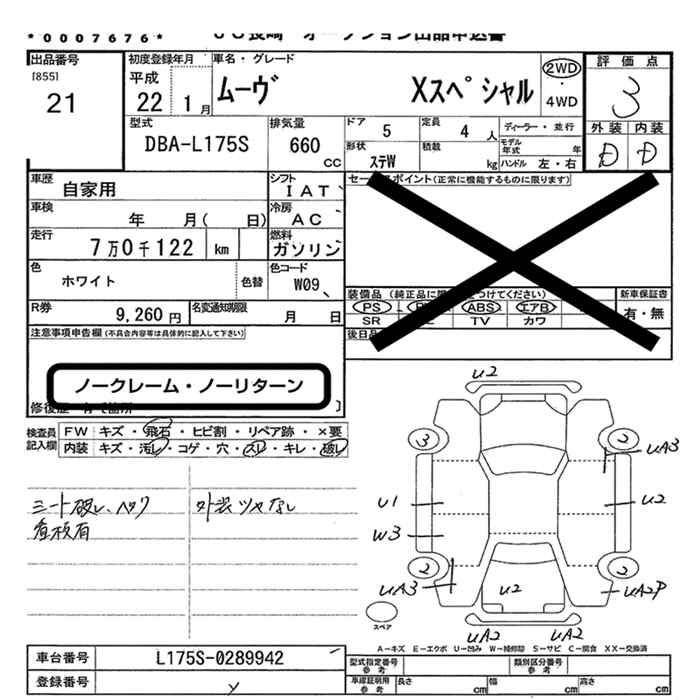 *0007676*
JU長崎 オークション出品申込書
出品番号
[855]
21
初度登録年月
平成
22 1月
車名・グレード
ムーヴ Xスペシャル
2WD
・
4WD
評価点
3
外装 内装
D D
型式
DBA-L175S
排気量
660
CC
ドア 5
定員 4 人
ディーラー・並行
形状 ステW
積載 kg
モデル年式 年
ハンドル 左・右
車歴 自家用
シフト IAT
セールスポイント(正常に機能するものに限ります)
車検 年 月( 日)
冷房 AC
走行 7万0千122 km
燃料 ガソリン
色 ホワイト
色替
色コード W09
R券 9,260円
名変通知期限 月 日
装備品
新車保証書
有・無
PS ABS エアB
SR TV カワ
後日品
注意事項申告欄(不具合内容等は具体的に記入して下さい)
ノークレーム・ノーリターン
修復歴 有 箇所
検査員記入欄
FW キズ・飛石・ヒビ割・リペア跡・×要
内装 キズ・汚レ・コゲ・穴・スレ・キレ・破レ
シート破レ、ヘタリ
看板有
外装ツヤなし
U2
3
2
UA3
U1
U2
W3
2
2
UA3
U2
UA2P
UA2
UA2
スペア
A-キズ E-エクボ U-凹み W-補修跡 S-サビ C-腐食 XX-交換済
車台番号 L175S-0289942
登録番号
型式指定番号
参考
類別区分番号
参考
車庫証明用
参考
長さ cm
幅 cm
高さ cm